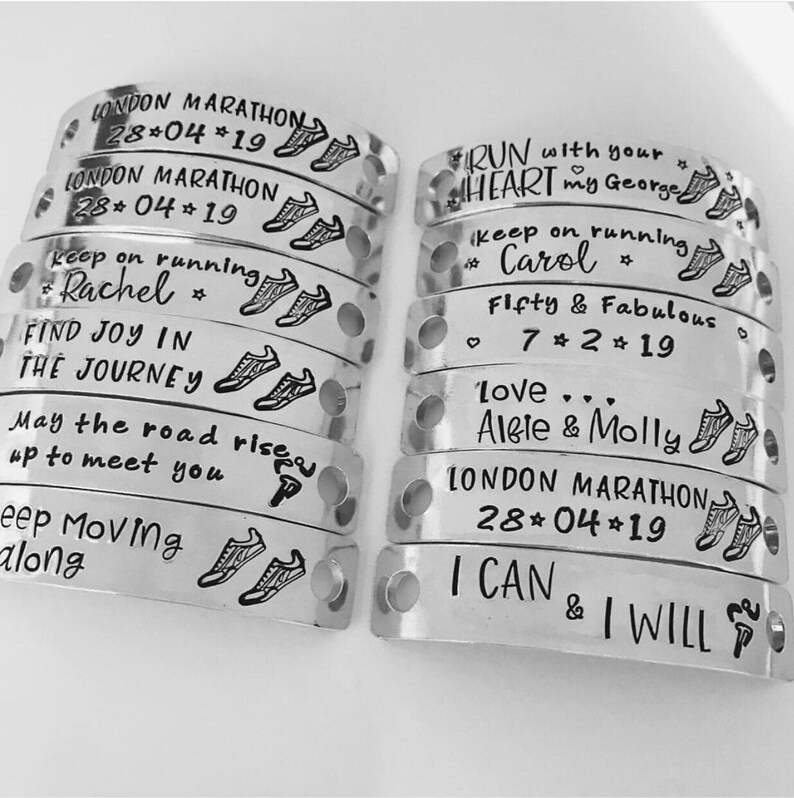 LONDON MARATHON
28*04*19
LONDON MARATHON
28*04*19
Keep on running
* Rachel *
FIND JOY IN
THE JOURNEY
May the road rise
up to meet you
eep Moving
along
RUN with your
HEART my George
Keep on running
* Carol *
Fifty & Fabulous
♡ 7*2*19 ♡
Love...
Alfie & Molly
LONDON MARATHON
28*04*19
I CAN
& I WILL